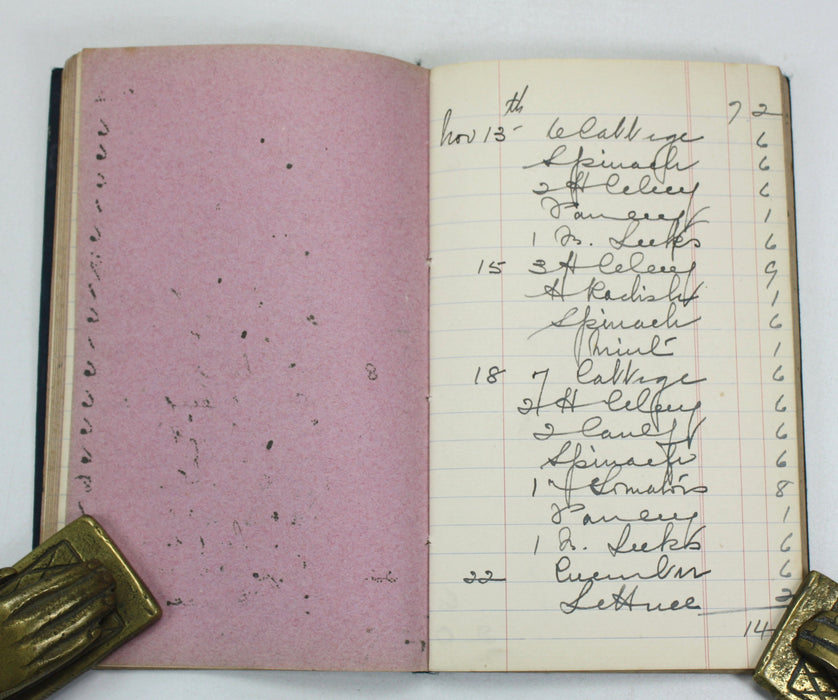 7 2
Nov 13th 6 Cabbage 6
Spinach 6
2 H Celery 6
1
1 B. Leeks 6
15 3 H Celery 9
H Radish 1
Spinach 6
Mint 1
18 7 Cabbage 6
2 H Celery 6
2 Caulf 6
Spinach 6
1 Tomatoes 8
1
1 B. Leeks 6
22 Cucumber 6
Lettuce 2
14
8